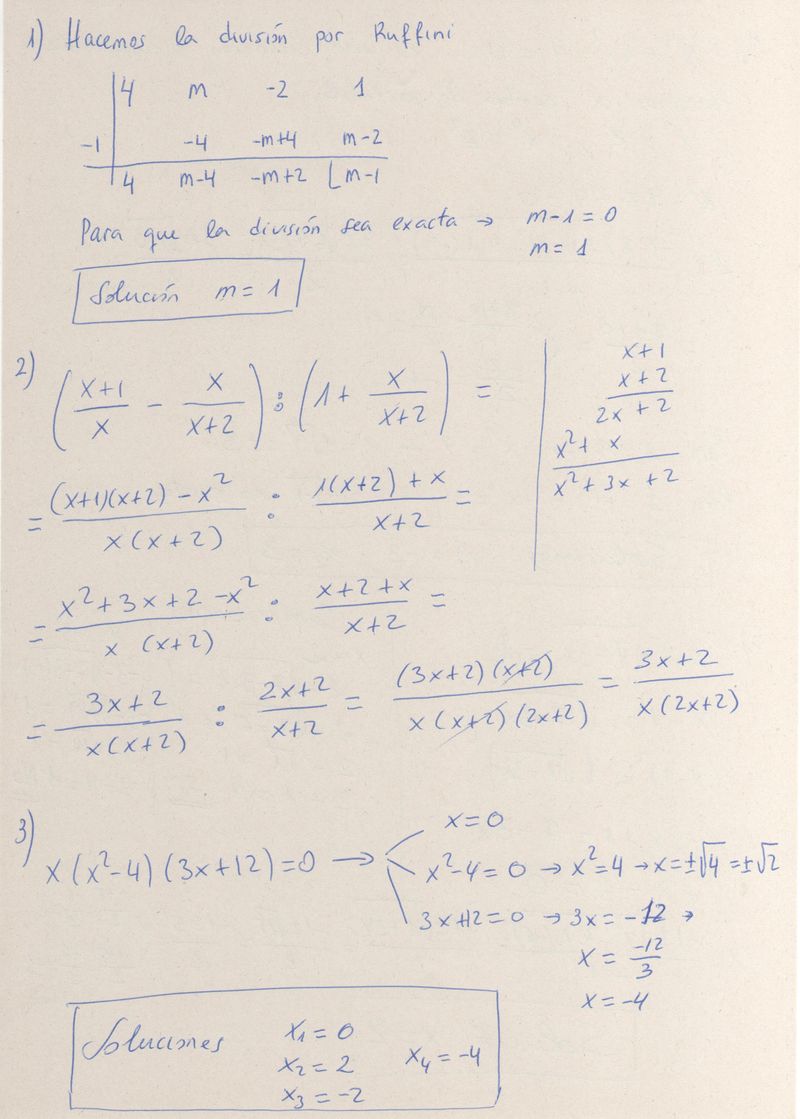 1) Hacemos la división por Ruffini
4 m -2 1
-1 -4 -m+4 m-2
4 m-4 -m+2 m-1
Para que la división sea exacta → m-1=0
m=1
Solución m=1
2) ((x+1)/x - x/(x+2)) : (1 + x/(x+2)) =
x+1
x+2
2x+2
x²+ x
x²+3x+2
= ((x+1)(x+2) - x²)/(x(x+2)) : (1(x+2)+x)/(x+2) =
= (x²+3x+2-x²)/(x (x+2)) : (x+2+x)/(x+2) =
= (3x+2)/(x(x+2)) : (2x+2)/(x+2) = ((3x+2)(x+2))/(x(x+2)(2x+2)) = (3x+2)/(x(2x+2))
3) x(x²-4)(3x+12)=0 →
x=0
x²-4=0 → x²=4 → x=±√4=±√2
3x+12=0 → 3x=-12 →
x = -12/3
x=-4
Soluciones
x₁=0
x₂=2
x₃=-2
x₄=-4